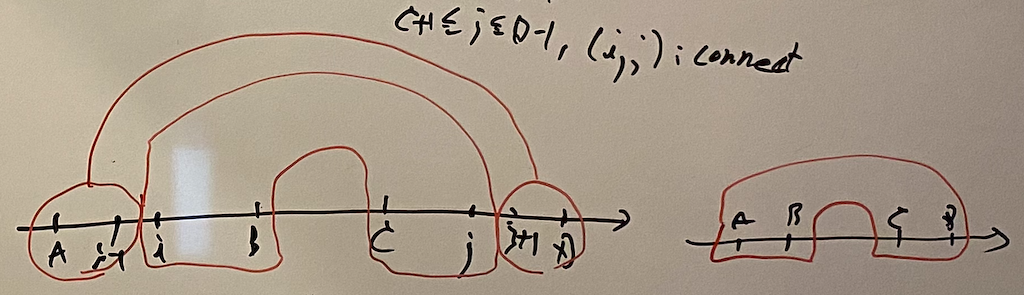 C+1≤j≤D-1, (i,j): connect
A i-1 i B C j j+1 D
A B C D